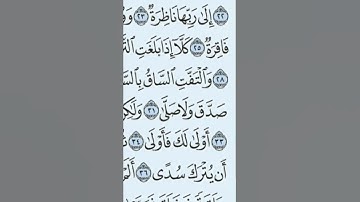 ٢٢ إِلَىٰ رَبِّهَا نَاظِرَةٌ ٢٣
فَاقِرَةٌ ٢٥ كَلَّآ إِذَا بَلَغَتِ
٢٨ وَٱلْتَفَّتِ ٱلسَّاقُ
صَدَّقَ وَلَا صَلَّىٰ ٣١
٣٣ أَوْلَىٰ لَكَ فَأَوْلَىٰ ٣٤
أَن يُتْرَكَ سُدًى ٣٦